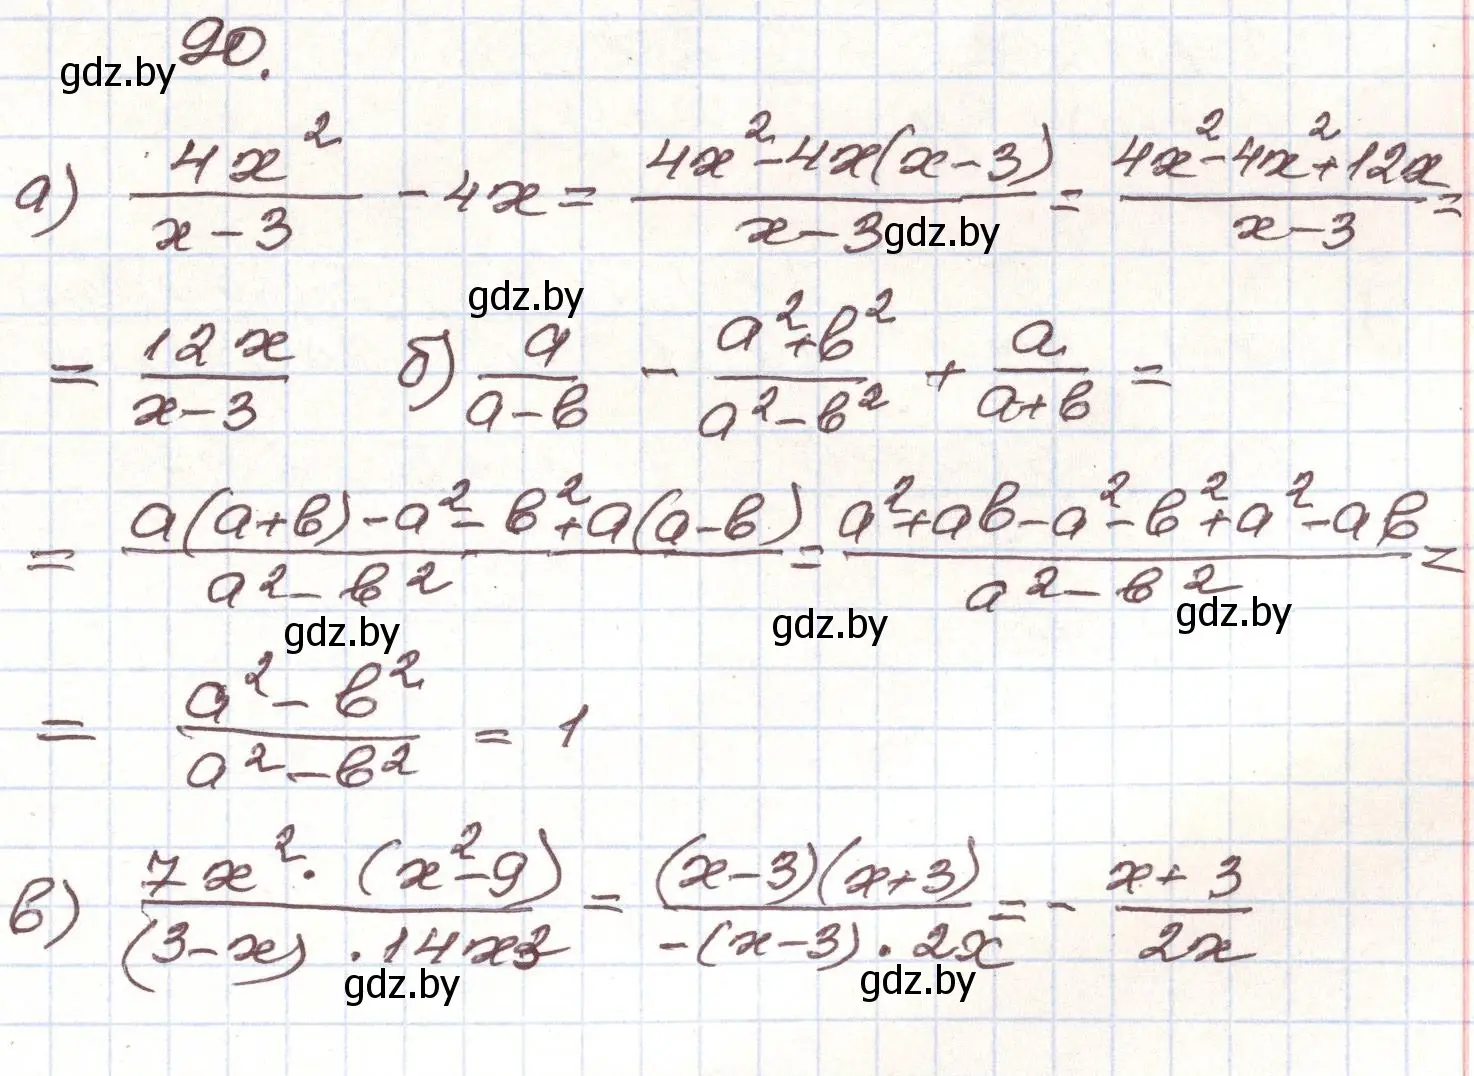 90.
gdz.by
а) 4x²/(x-3) - 4x = (4x²-4x(x-3))/(x-3) = (4x²-4x²+12x)/(x-3) =
gdz.by
gdz.by
= 12x/(x-3) б) a/(a-b) - (a²+b²)/(a²-b²) + a/(a+b) =
= (a(a+b)-a²-b²+a(a-b))/(a²-b²) = (a²+ab-a²-b²+a²-ab)/(a²-b²) =
gdz.by gdz.by gdz.by
= (a²-b²)/(a²-b²) = 1
в) (7x²·(x²-9))/((3-x)·14x³) = ((x-3)(x+3))/(-(x-3)·2x) = - (x+3)/(2x)
gdz.by gdz.by